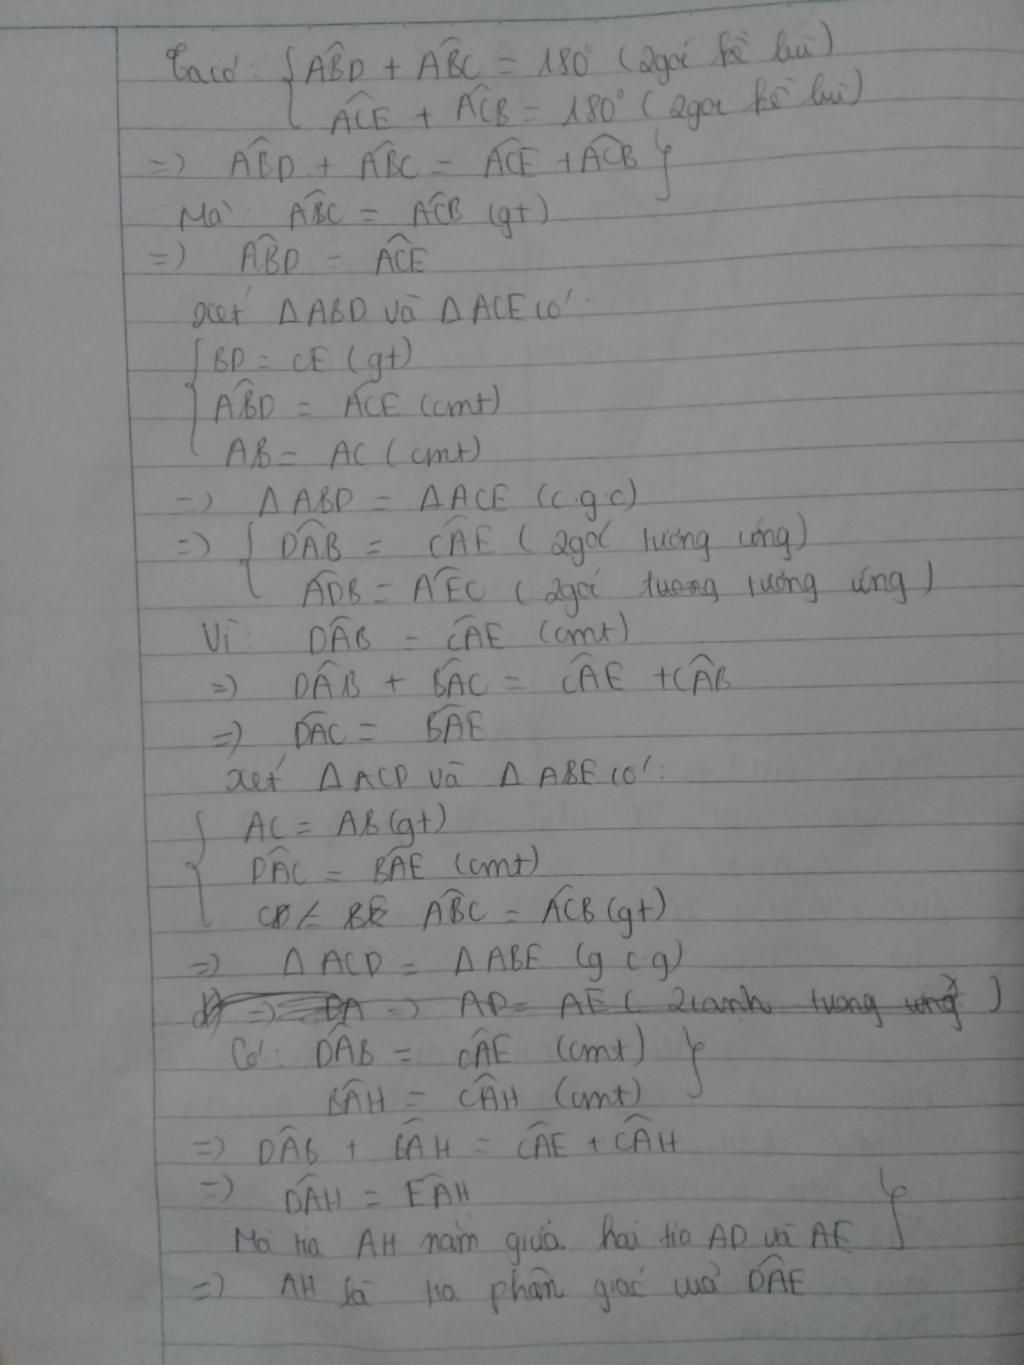 Ta có: { ABD̂ + ABĈ = 180° (2góc kề bù)
ACÊ + ACB̂ = 180° (2góc kề bù)
=> ABD̂ + ABĈ = ACÊ + ACB̂ }
Mà: ABĈ = ACB̂ (gt)
=> ABD̂ = ACÊ
xét ΔABD và ΔACE có:
{ BD = CE (gt)
ABD̂ = ACÊ (cmt)
AB = AC (cmt)
=> ΔABD = ΔACE (c.g.c)
=> { DAB̂ = CAÊ (2góc tương ứng)
ADB̂ = AEĈ (2góc tương tương ứng)
Vì: DAB̂ = CAÊ (cmt)
=> DAB̂ + BAĈ = CAÊ + CAB̂
=> DAĈ = BAÊ
xét ΔACD và ΔABE có:
{ AC = AB (gt)
DAĈ = BAÊ (cmt)
ABĈ = ACB̂ (gt)
=> ΔACD = ΔABE (g c g)
=> DA => AD = AE (2cạnh tương ứng)
Có: DAB̂ = CAÊ (cmt) }
BAĤ = CAĤ (cmt)
=> DAB̂ + BAĤ = CAÊ + CAĤ
=> DAĤ = EAĤ }
Mà tia AH nằm giữa hai tia AD và AE
=> AH là tia phân giác của DAÊ